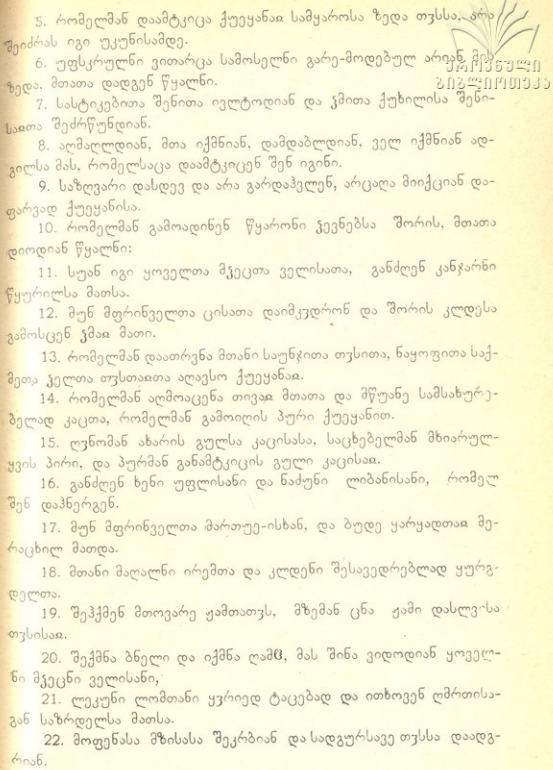 5. რომელმან დაამტკიცა ქუეყანაჲ სამყაროსა ზედა თჳსსა, არა
შეიძრას იგი უკუნისამდე.
6. უფსკრულნი ვითარცა სამოსელნი გარე-მოდებულ არიან მის
ზედა, მთათა დადგენ წყალნი.
ეროვნული
ბიბლიოთეკა
7. სასტიკებითა შენითა ივლტოდიან და ჴმითა ქუხილისა შენი-
საჲთა შეძრწუნდიან.
8. აღმაღლდიან, მთა იქმნიან, დამდაბლდიან, ველ იქმნიან ად-
გილსა მას, რომელსაცა დაამტკიცენ შენ იგინი.
9. საზღვარი დასდევ და არა გარდაჰვლენ, არცაღა მიიქციან და-
ფარვად ქუეყანისა.
10. რომელმან გამოადინენ წყარონი ჴევნებსა შორის, მთათა
დიოდიან წყალნი;
11. სუან იგი ყოველთა მჴეცთა ველისათა, განძღენ კანჯარნი
წყურილსა მათსა.
12. მუნ მფრინველთა ცისათა დაიმკჳდრონ და შორის კლდესა
გამოსცენ ჴმაჲ მათი.
13. რომელმან დაათრვნა მთანი საუნჯითა თჳსითა, ნაყოფითა საქ-
მეთა ჴელთა თჳსთაჲთა აღავსო ქუეყანაჲ.
14. რომელმან აღმოაცენა თივაჲ მთათა და მწუანე სამსახურე-
ბელად კაცთა, რომელმან გამოიღის პური ქუეყანით.
15. ღჳნომან ახარის გულსა კაცისასა, საცხებელმან მხიარულ-
ყვის პირი, და პურმან განამტკიცის გული კაცისაჲ.
16. განძღენ ხენი უფლისანი და ნაძუნი ლიბანისანი, რომელ
შენ დაჰნერგენ.
17. მუნ მფრინველთა მართუე-ისხან, და ბუდე ყარყადთაჲ მე-
რაცხილ მათდა.
18. მთანი მაღალნი ირემთა და კლდენი შესავედრებლად ყურდ-
გელთა.
19. შეჰქმენ მთოვარე ჟამთათჳს, მზემან ცნა ჟამი დასლვისა
თჳსისაჲ.
20. შექმნა ბნელი და იქმნა ღამჱ, მას შინა ვიდოდიან ყოველ-
ნი მჴეცნი ველისანი,
21. ლეკუნი ლომთანი ყჳრიედ ტაცებად და ითხოვენ ღმრთისა-
გან საზრდელსა მათსა.
22. მოფენასა მზისასა შეკრბიან და სადგურსავე თჳსსა დაადგ-
რიან.